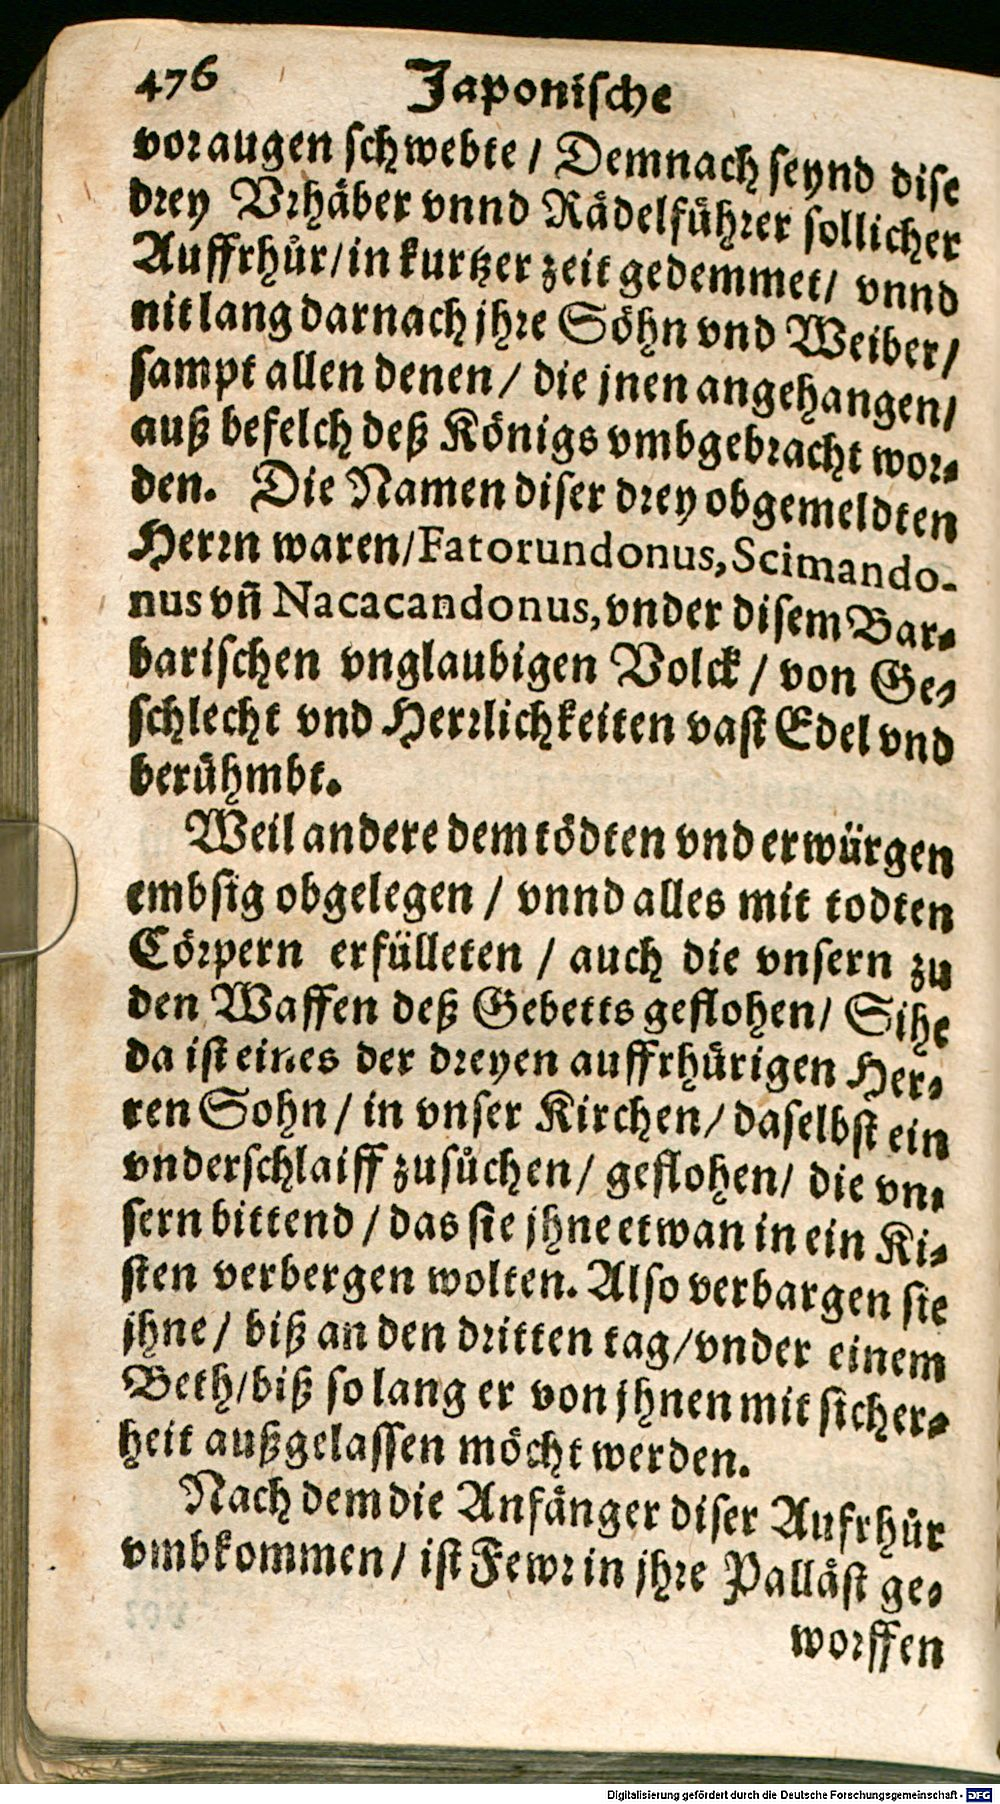 476 Japonische
vor augen schwebte / Demnach seynd dise
drey Vrhäber vnnd Rädelführer sollicher
Auffrhůr/ in kurtzer zeit gedemmet/ vnnd
nit lang darnach jhre Söhn vnd Weiber/
sampt allen denen / die jnen angehangen/
auß befelch deß Königs vmbgebracht wor⸗
den. Die Namen diser drey obgemeldten
Herrn waren/Fatorundonus, Scimando-
nus vñ Nacacandonus, vnder disem Bar⸗
barischen vnglaubigen Volck / von Ge⸗
schlecht vnd Herrlichkeiten vast Edel vnd
berühmbt.
Weil andere dem tödten vnd erwürgen
embsig obgelegen / vnnd alles mit todten
Cörpern erfülleten / auch die vnsern zu
den Waffen deß Gebetts geflohen/ Sihe
da ist eines der dreyen auffrhürigen Her⸗
ren Sohn / in vnser Kirchen/ daselbst ein
vnderschlaiff zusůchen/ geflohen/ die vn⸗
sern bittend / das sie jhne etwan in ein Ki⸗
sten verbergen wolten. Also verbargen sie
jhne / biß an den dritten tag/vnder einem
Beth/biß so lang er von jhnen mit sicher⸗
heit außgelassen möcht werden.
Nach dem die Anfänger diser Aufrhůr
vmbkommen/ ist Fewr in jhre Palläst ge⸗
worffen
Digitalisierung gefördert durch die Deutsche Forschungsgemeinschaft - DFG